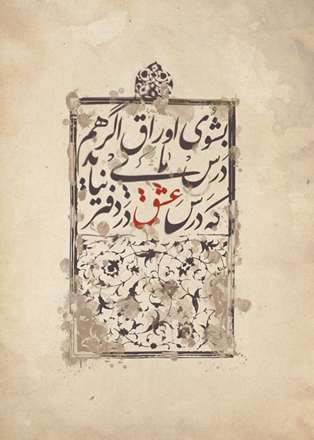 بشوی اوراق اگر هم
درس مایی
که درس عشق در دفتر نیاید